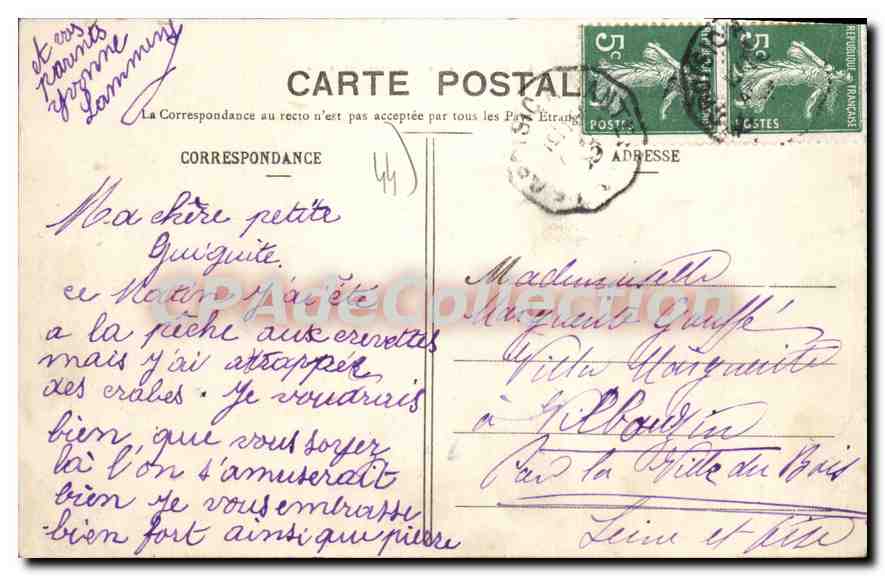 et vos
parents
Yvonne
Lammens
CARTE POSTALE
La Correspondance au recto n'est pas acceptée par tous les Pays Etrang
CORRESPONDANCE
ADRESSE
44
5c
POSTES
REPUBLIQUE FRANÇAISE
5c
POSTES
Ma chère petite
Guiguite.
ce Matin y'ai été
a la pêche aux crevettes
mais y'ai attrapper
des crabes. Je voudrais
bien que vous soyez
là l'on s'amuserait
bien je vous embrasse
bien fort ainsi que pierre
Mademoiselle
Marguerite
Villa Marguerite
à Villbougin
Par la Ville du Bois
Seine et Oise
CPAdeCollection.com